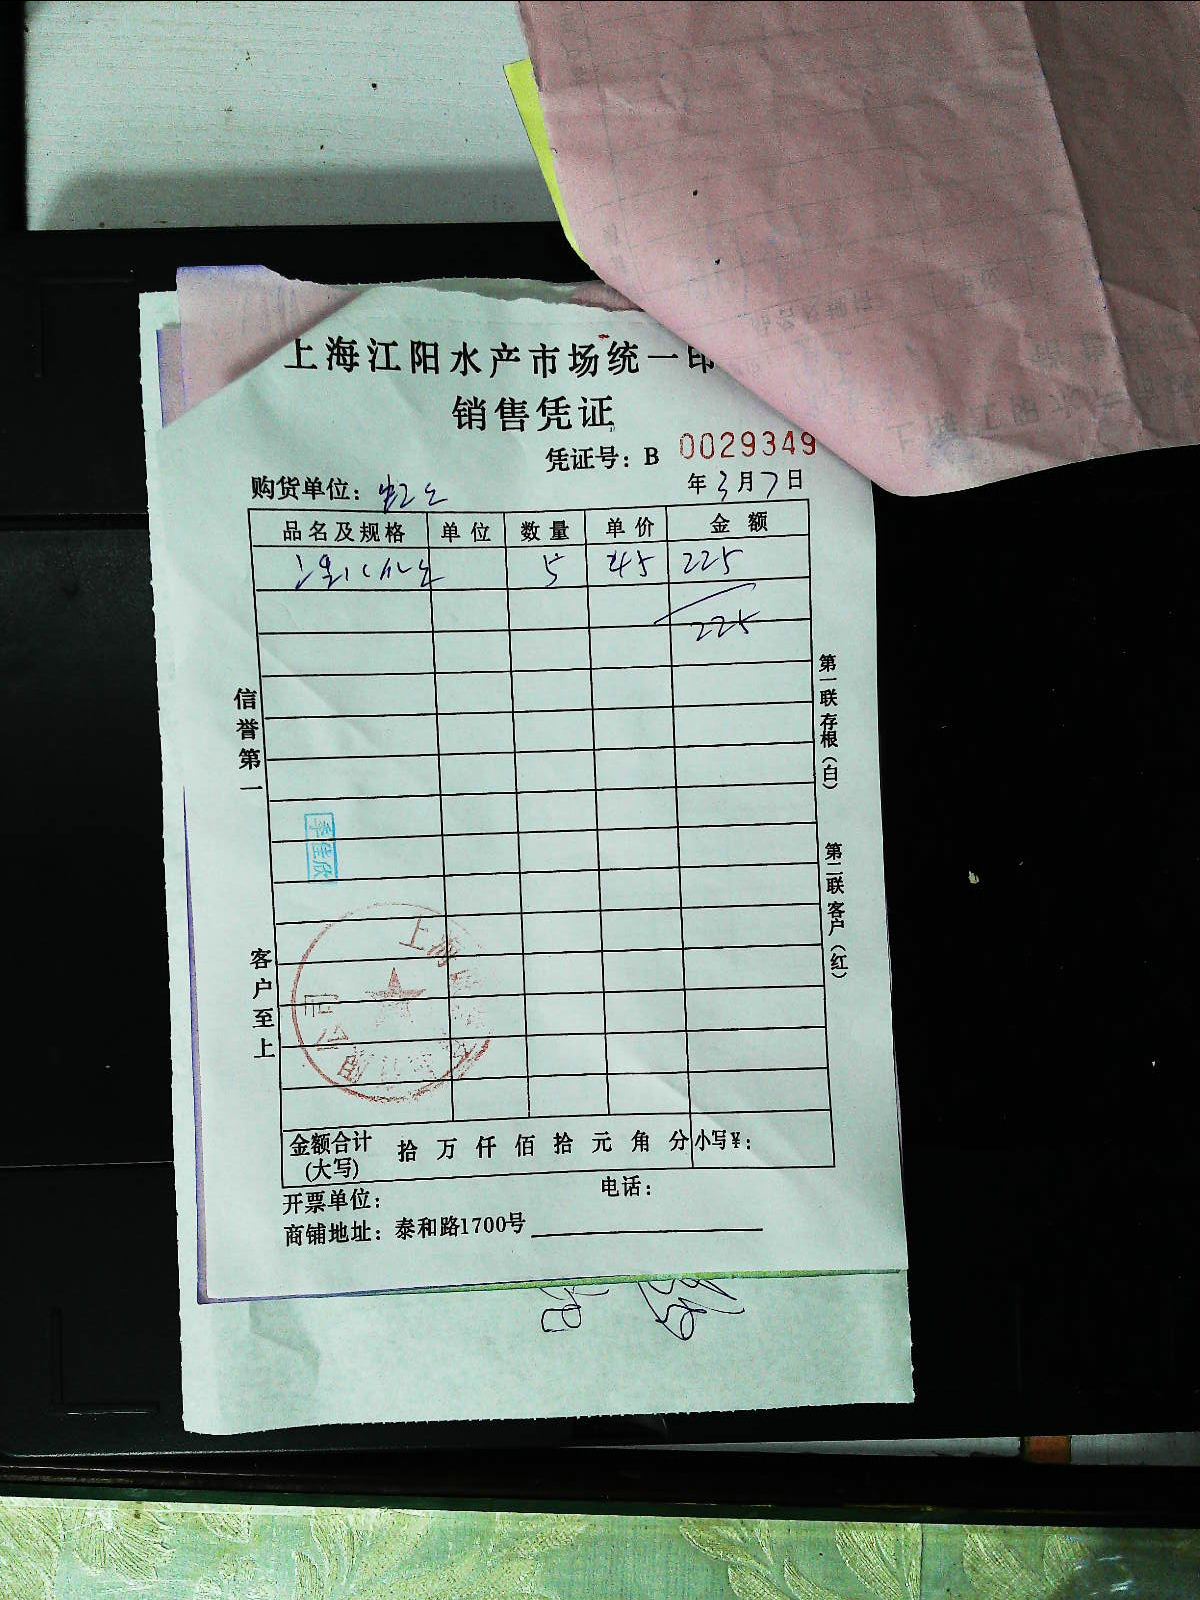 上海江阳水产市场统一印
销售凭证
凭证号：B 0029349
购货单位：
年3月7日
品名及规格 单位 数量 单价 金额
5 45 225
225
信誉第一
客户至上
第一联存根（白）
第二联客户（红）
季佳欣
上海
金额合计(大写) 拾 万 仟 佰 拾 元 角 分 小写¥：
开票单位： 电话：
商铺地址：泰和路1700号